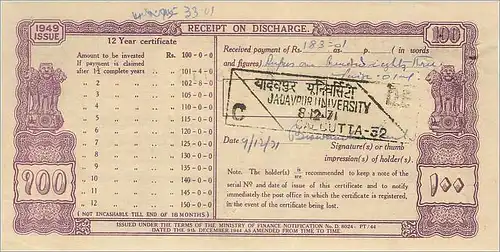 33-01
1949
ISSUE
RECEIPT ON DISCHARGE.
100
12 Year certificate
Amount to be invested Rs. 100-0-0
If payment is claimed
after 1½ complete years „ 101-4-0
„ 2 „ „ „
„ 3 „ „ „
„ 4 „ „ „
„ 5 „ „ „
„ 6 „ „ „
„ 7 „ „ „
„ 8 „ „ „
„ 9 „ „ „
„ 10 „ „ „
„ 11 „ „ „
„ 12 „ „ „ 150-0-0
( NOT ENCASHABLE TILL END OF 18 MONTHS )
Received payment of Rs 183-01 as. p. ( in words
and figures) Rupees one hundred eighty three
यादवपुर युनिभर्सिटी
JADAVPUR UNIVERSITY
8-12-71
C
CALCUTTA-32
Date 9/12/71
Signature(s) or thumb
impression(s) of holder(s).
Note. The holder(s) is/are recommended to keep a note of the
serial Nº and date of issue of this certificate and to notify
immediately the post office in which the certificate is registered,
in the event of the certificate being lost.
100
१००
ISSUED UNDER THE TERMS OF THE MINISTRY OF FINANCE NOTIFICATION No. D. 8024 - PT/44
DATED THE 9TH DECEMBER 1944 AS AMENDED FROM TIME TO TIME.